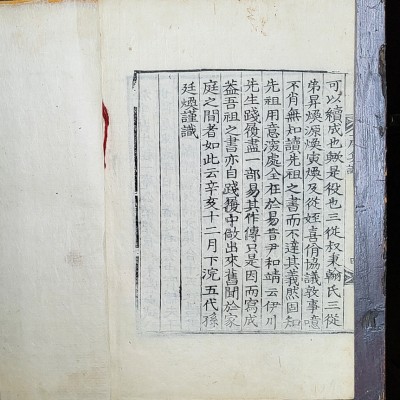 可以續成也歟是役也三從叔秉翰氏三從
弟昇煥源煥寅煥及從姪喜脩協議敦事噫
不肖無知讀先祖之書而不達其義然固知
先祖用意深處全在於易昔尹和靖云伊川
先生踐履盡一部易其作傳只是因而寫成
蓋吾祖之書亦自踐履中做出來舊聞於家
庭之間者如此云辛亥十二月下浣五代孫
廷煥謹識